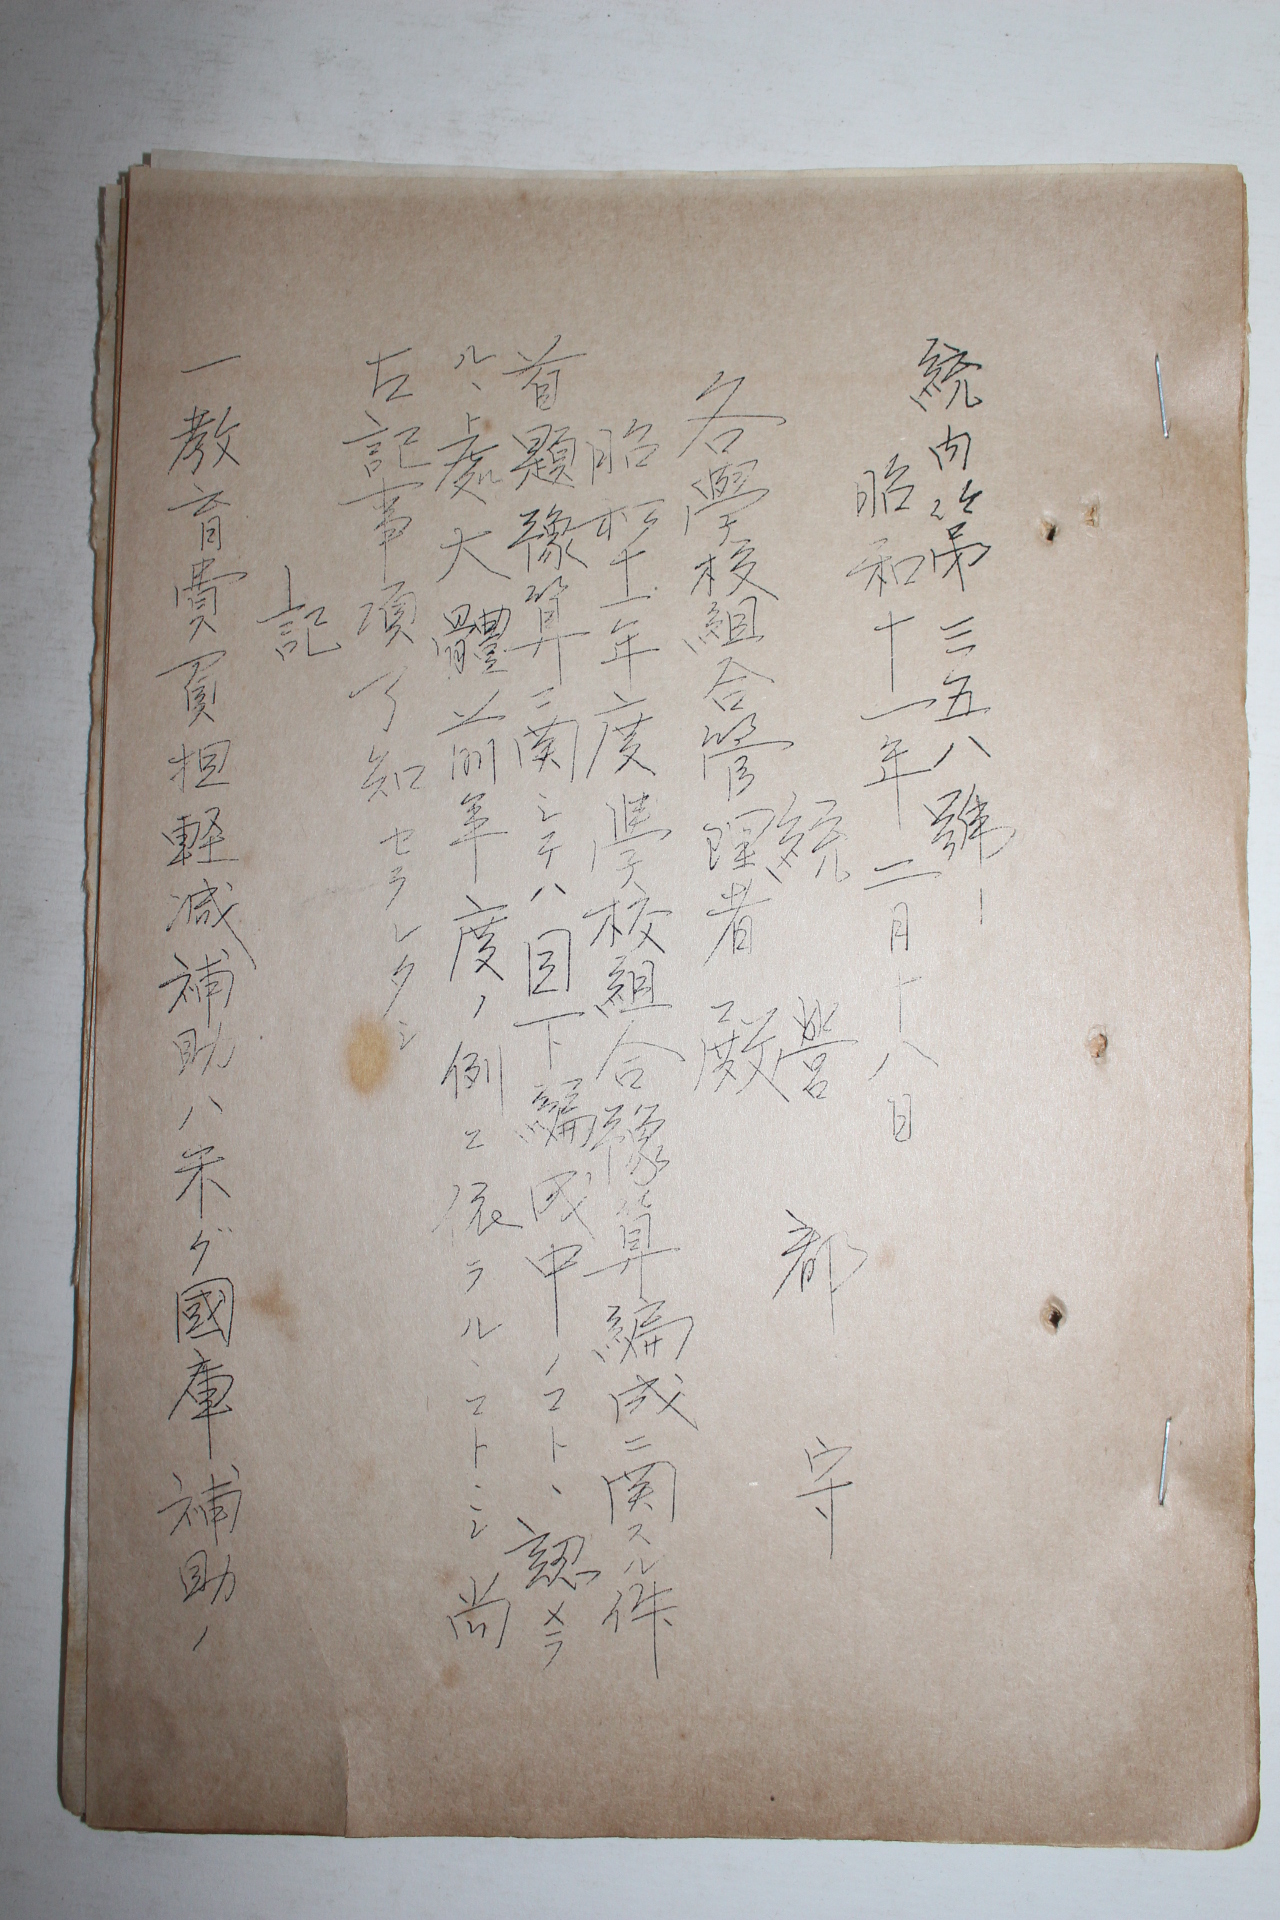 統内第三五八號
昭和十一年二月十八日
統營郡守
各學校組合管理者殿
昭和十一年度學校組合豫算編成ニ関スル件
首題豫算ニ関シテハ目下編成中ノコトヽ認メラ
ルヽ處大體前年度ノ例ニ依ラルヽコトヽシ尚
左記事項了知セラレタシ
記
一教育費負担軽減補助ハ未ダ國庫補助ノ